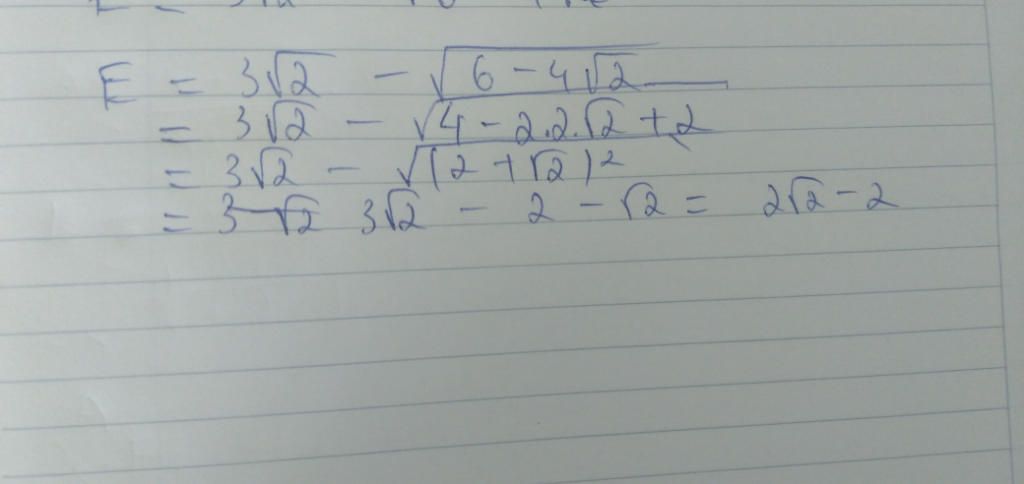 E = 3√2 - √(6 - 4√2)
= 3√2 - √(4 - 2.2.√2 + 2)
= 3√2 - √((2 + √2)²)
= 3√2 - 2 - √2 = 2√2 - 2